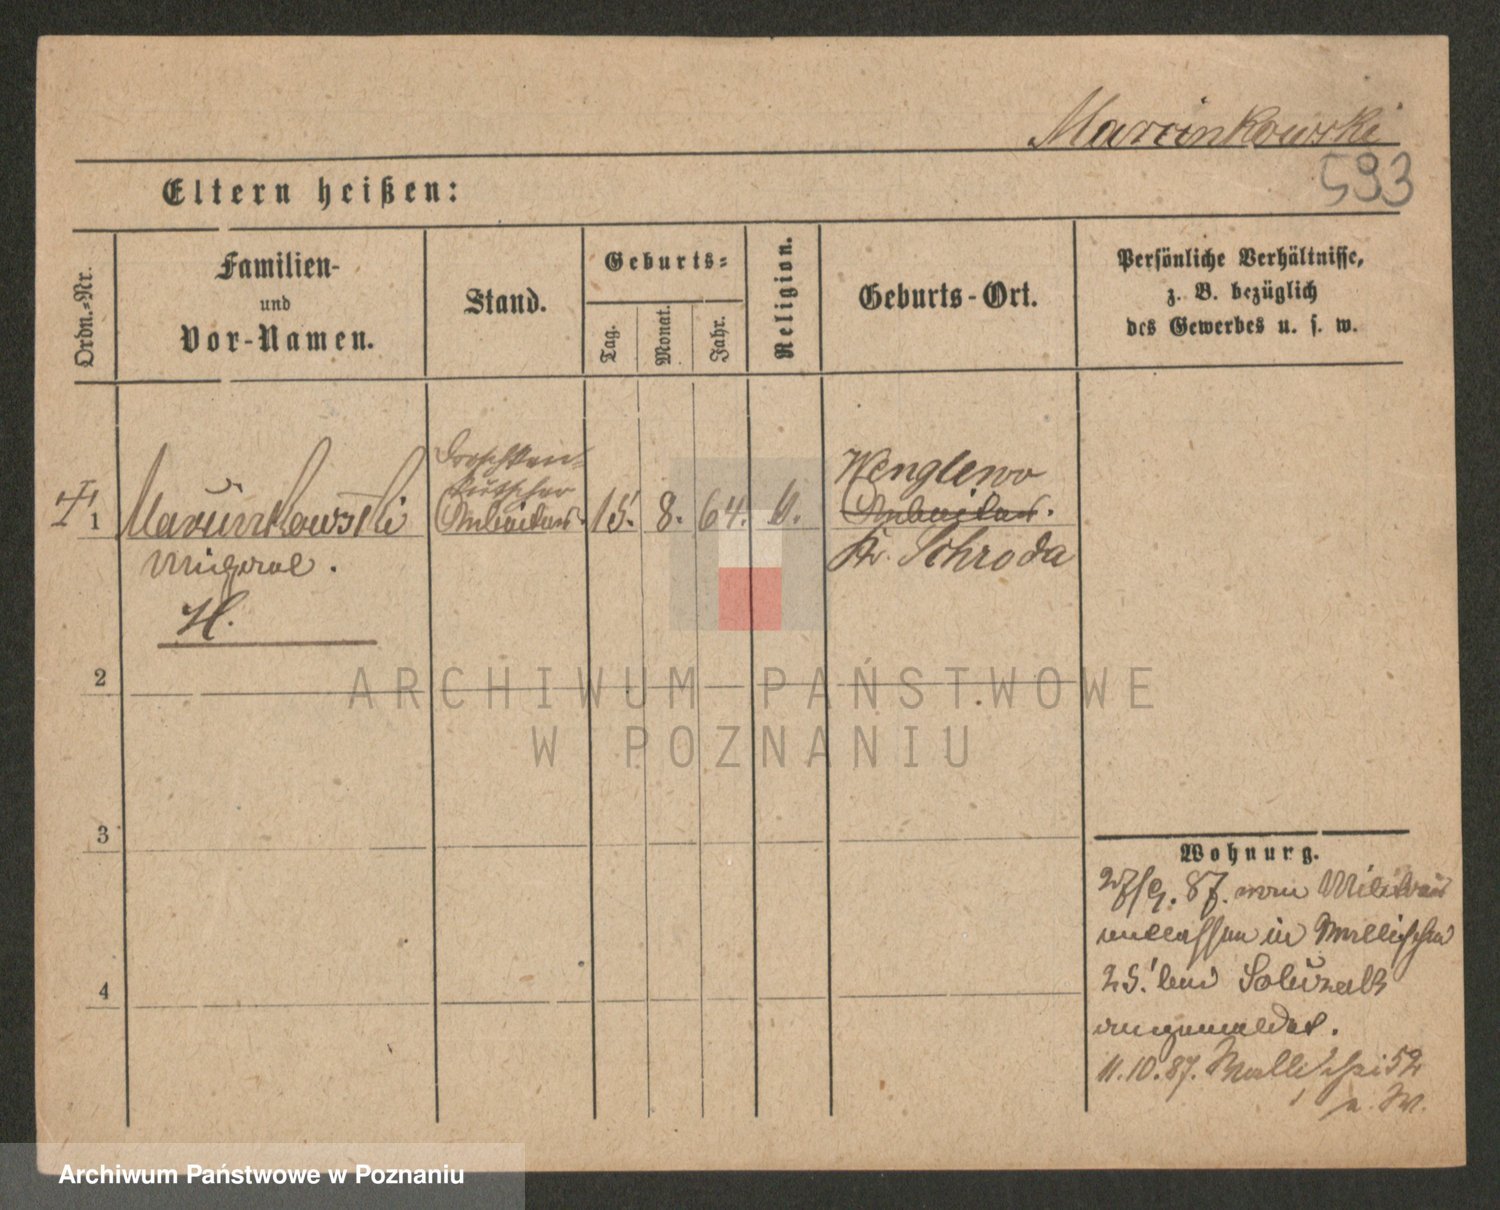 Marcinkowski
593
Eltern heißen:
Ordn.-Nr.
Familien-
und
Vor-Namen.
Stand.
Geburts-
Tag.
Monat.
Jahr.
Religion.
Geburts-Ort.
Persönliche Verhältnisse,
z. B. bezüglich
des Gewerbes u. s. w.
Droschken-
kutscher
1 Marcinkowski Arbeiter. 15. 8. 64.
Wenglewo
Arbeiter.
Kr. Schroda
Michael.
H.
2
3
4
Wohnung.
27/9. 87. vom Militair
entlassen in Wallischei
25. bei
angemeldet.
11.10.87. Wallischei 52
b. W.
ARCHIWUM PAŃSTWOWE
W POZNANIU
Archiwum Państwowe w Poznaniu